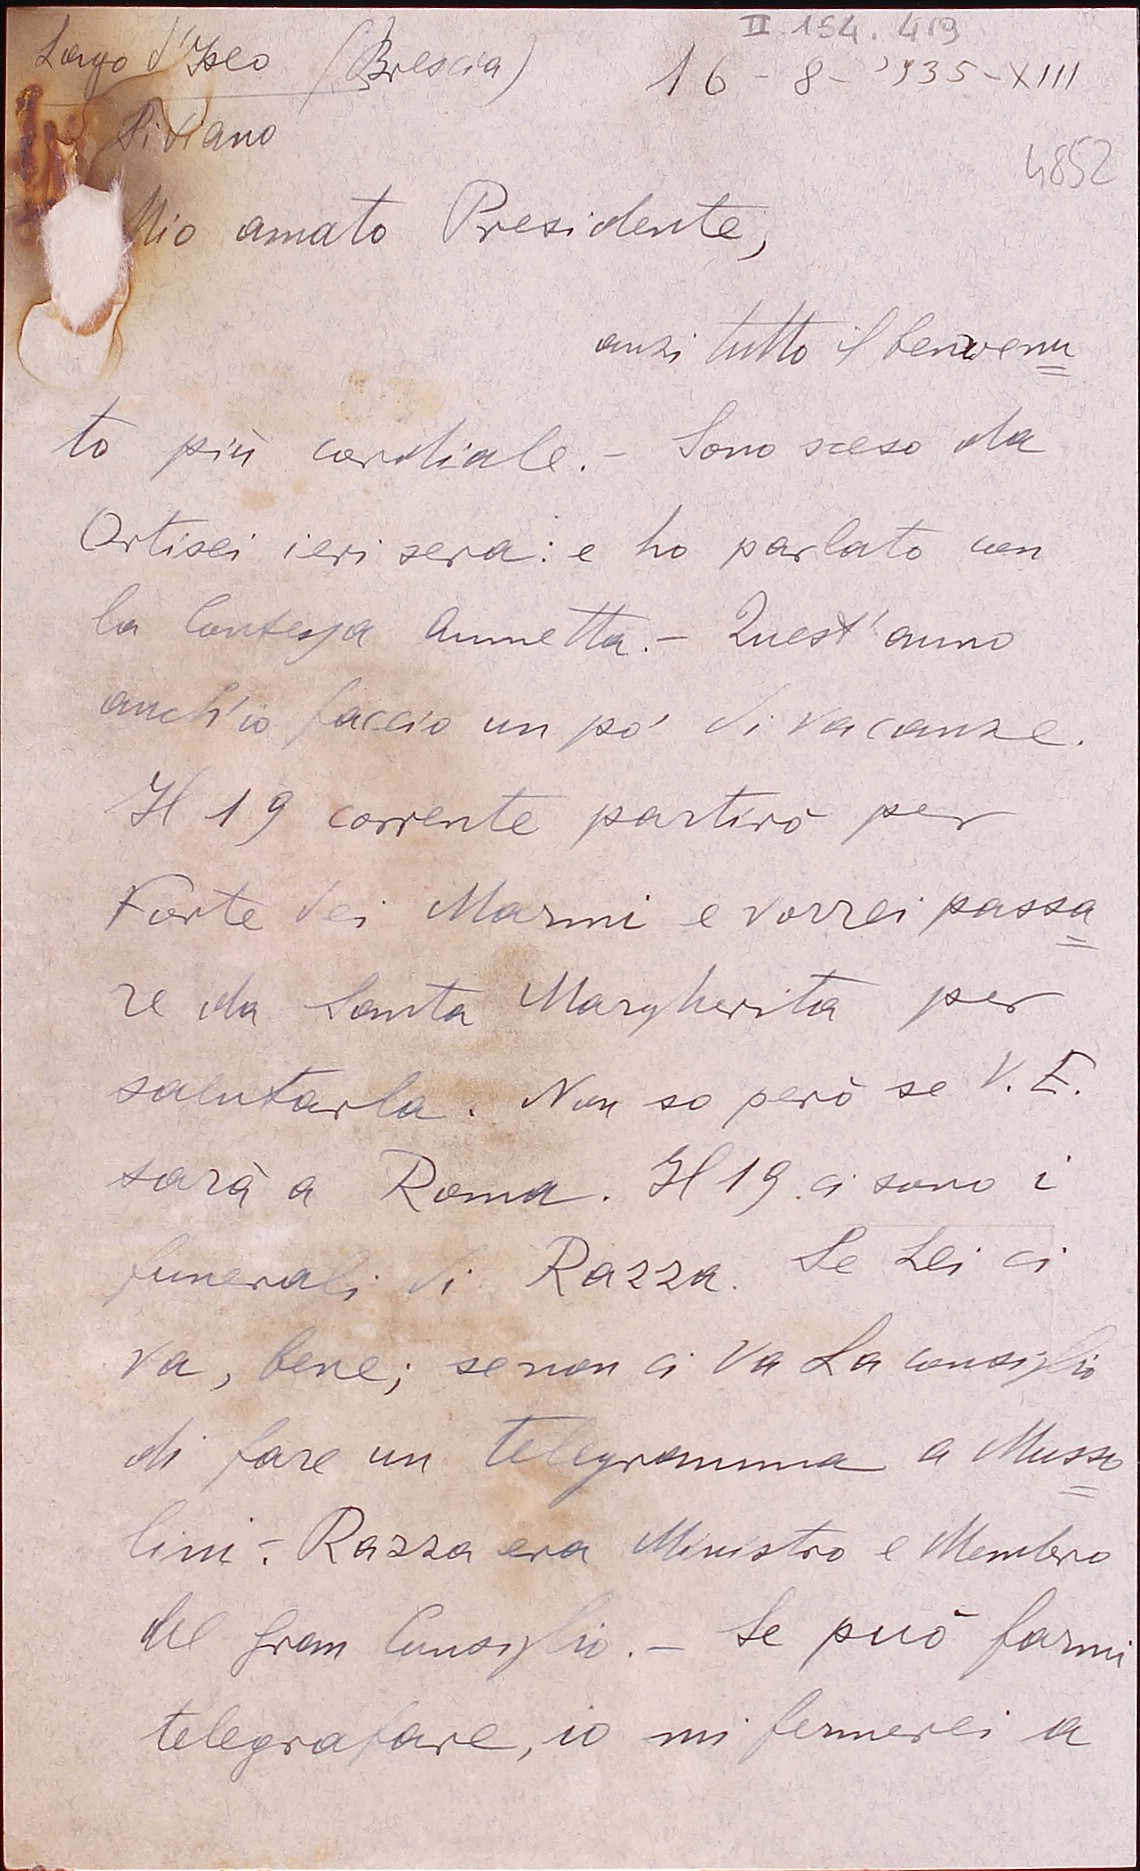 II 154. 419
Lago d'Iseo (Brescia)
16-8-'935-XIII
Siviano
4852
Mio amato Presidente,
anzi tutto il benvenu
to più cordiale.- Sono sceso da
Ortisei ieri sera: e ho parlato con
la Contessa Annetta.- Quest'anno
anch'io faccio un pò di vacanze.
Il 19 corrente partirò per
Forte dei Marmi e vorrei passa
re da Santa Margherita per
salutarla. Non so però se V. E.
sarà a Roma. Il 19 ci sono i
funerali di Razza. Se Lei ci
va, bene; se non ci va La consiglio
di fare un telegramma a Musso
lini.- Razza era Ministro e Membro
del Gran Consiglio.- Se può farmi
telegrafare, io mi fermerei a